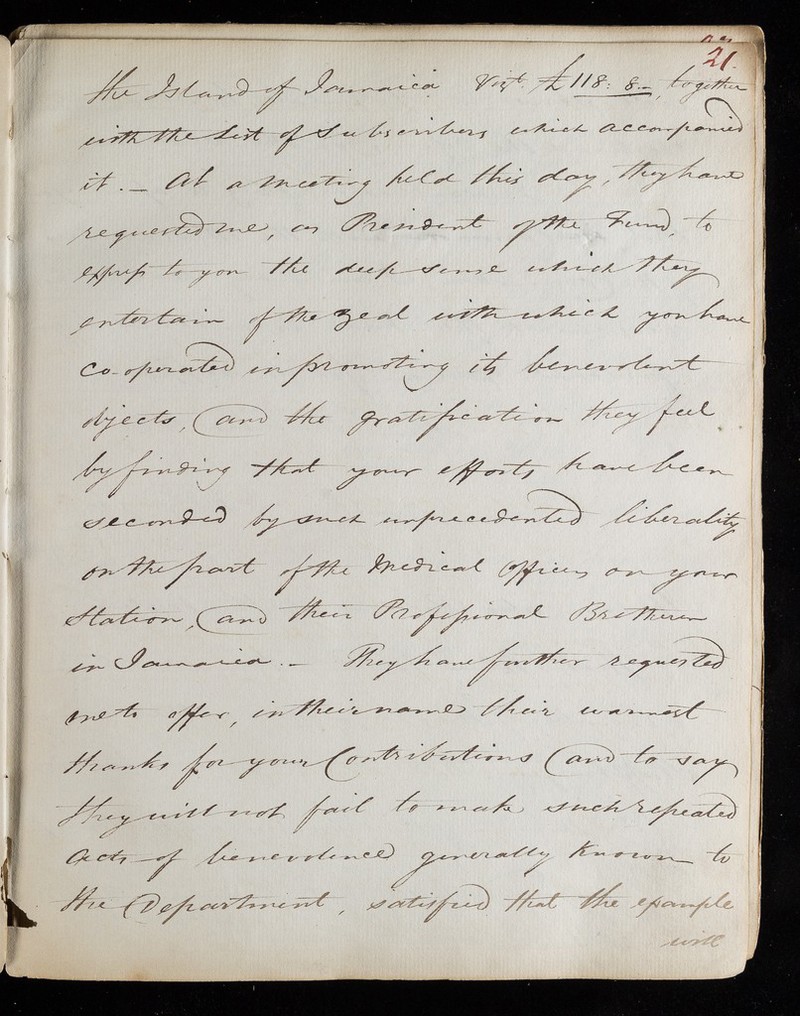 21.
the Island of Jamaica Vizt. £118: 8 – together
with the List of Subscribers which accompanied
it. – At a Meeting held this day, they have
requested me, as President of the Fund, to
express to you the deep sense which they
entertain of the zeal with which you have
co-operated in promoting its benevolent
objects, and the gratification they feel
by finding that your efforts have been
seconded by such unprecedented liberality
on the part of the Medical Officers on your
Station, and their Professional Bretheren
in Jamaica. – They have further requested
me to offer, in their name their warmest
thanks for your Contributions and to say
they will not fail to make such repeated
Acts of benevolence generally known to
the Department, satisfied that the example
will